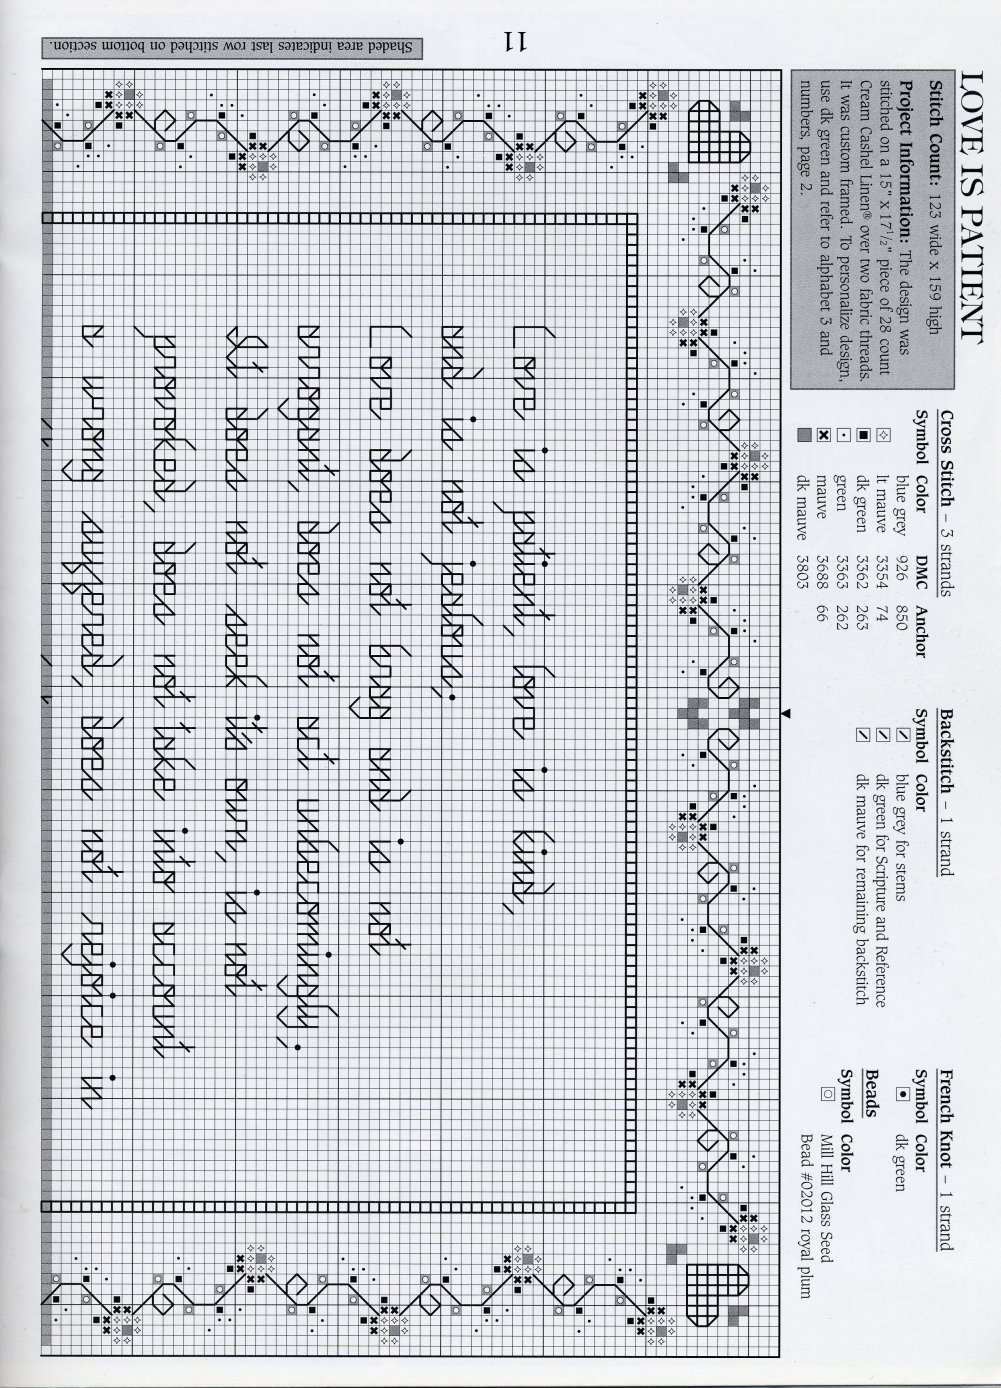 LOVE IS PATIENT
Stitch Count: 123 wide x 159 high
Project Information: The design was
stitched on a 15" x 17½" piece of 28 count
Cream Cashel Linen® over two fabric threads.
It was custom framed. To personalize design,
use dk green and refer to alphabet 3 and
numbers, page 2.
Cross Stitch – 3 strands
Symbol Color DMC Anchor
blue grey 926 850
lt mauve 3354 74
dk green 3362 263
green 3363 262
mauve 3688 66
dk mauve 3803
Backstitch – 1 strand
Symbol Color
blue grey for stems
dk green for Scripture and Reference
dk mauve for remaining backstitch
French Knot – 1 strand
Symbol Color
dk green
Beads
Symbol Color
Mill Hill Glass Seed
Bead #02012 royal plum
Love is patient, love is kind,
and is not jealous;
Love does not brag and is not
arrogant, does not act unbecomingly;
it does not seek its own, is not
provoked, does not take into account
a wrong suffered, does not rejoice in
Shaded area indicates last row stitched on bottom section.
11